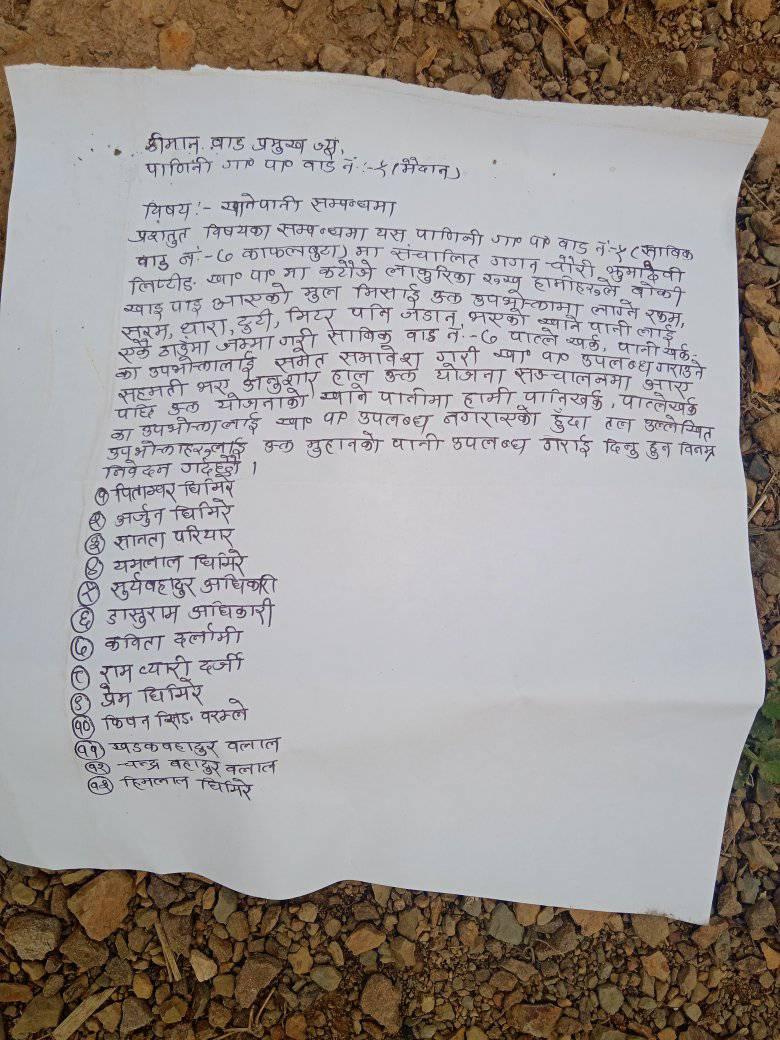 श्रीमान वाड प्रमुख ज्यू,
पाणिनी गा० पा० वाड नं:-५ (मैदान)
विषय:- खानेपानी सम्बन्धमा
प्रस्तुत विषयका सम्बन्धमा यस पाणिनी गा० पा० वाड नं:-५ (साविक
वाड नं:-७ काफलबुटा) मा संचालित गगन चौरी झुमादेवी
लिफ्टीङ खा० पा० मा कटौजे लाकुरिका हामीहरुले बोकी
खाइ पाइ आएको मुल मिसाई उक्त उपभोक्तामा लाग्ने रकम,
स्रम, धारा, टुटी, मिटर पनि जडान, भएको खाने पानी लाई
एकै ठाउँमा जम्मा गरी साविक वाड नं:-७ पात्ले खर्क, पानी खर्क
का उपभोक्तालाई समेत समावेश गरी खा० पा० उपलब्ध गराउने
सहमती भए अनुशार हाल उक्त योजना सञ्चालनमा आए
पछि उक्त योजनाको खाने पानीमा हामी पानिखर्क, पात्लेखर्क
का उपभोक्तालाई खा० पा० उपलब्ध नगराएको हुँदा तल उल्लेखित
उपभोक्ताहरुलाई उक्त मुहानको पानी उपलब्ध गराई दिनु हुन विनम्र
निवेदन गर्दछौं ।
१ पिताम्बर घिमिरे
२ अर्जुन घिमिरे
३ सानता परियार
४ यमलाल घिमिरे
५ सुर्यबहादुर अधिकारी
६ डासुराम अधिकारी
७ कविता दर्लामी
८ राम प्यारी दर्जी
९ प्रेम घिमिरे
१० किषन सिङ परम्ले
११ खडकबहादुर वलाल
१२ चन्द्र बहादुर वलाल
१३ हिमलाल घिमिरे